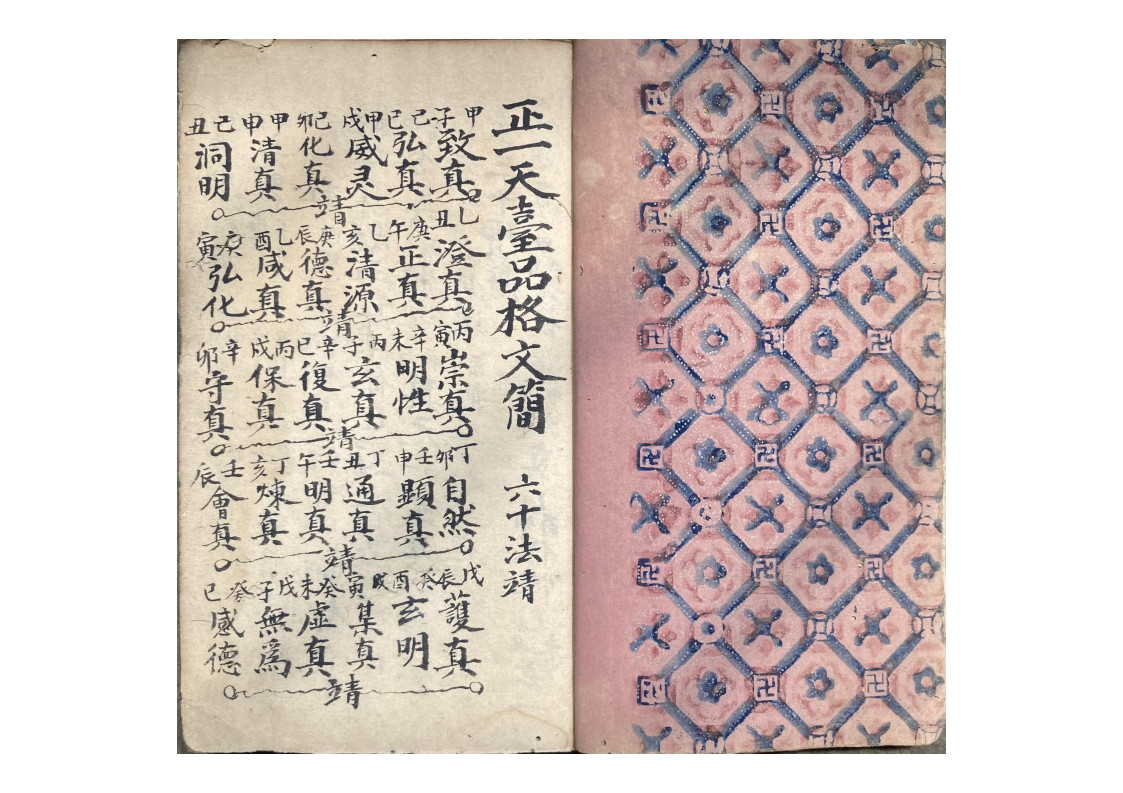 正一天臺品格文簡 六十法靖
甲子致真 乙丑澄真 丙寅崇真 丁卯自然 戊辰護真
己巳弘真 庚午正真 辛未明性 壬申顯真 癸酉玄明
甲戌威灵 乙亥清源 丙子玄真 丁丑通真 戊寅集真
靖 靖 靖 靖 靖
己卯化真 庚辰德真 辛巳復真 壬午明真 癸未虛真
甲申清真 乙酉咸真 丙戌保真 丁亥煉真 戊子無爲
己丑洞明 庚寅弘化 辛卯守真 壬辰會真 癸巳感德